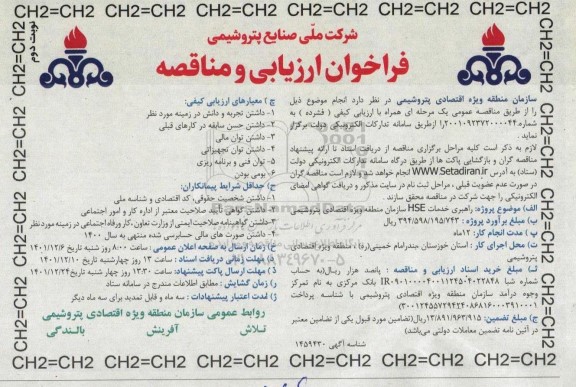 CH2=CH2 CH2=CH2 CH2=CH2 CH2=CH2 CH2=CH2 CH2=CH2
نوبت دوم
شرکت ملّی صنایع پتروشیمی
فراخوان ارزیابی و مناقصه
سازمان منطقه ویژه اقتصادی پتروشیمی در نظر دارد انجام موضوع ذیل
را از طریق مناقصه عمومی یک مرحله ای همراه با ارزیابی کیفی ( فشرده ) به
شماره ۲۰۰۱۰۹۲۳۷۲۰۰۰۰۴۴ را ازطریق سامانه تدارکات الکترونیکی دولت برگزار
نماید.
لازم به ذکر است کلیه مراحل برگزاری مناقصه از دریافت اسناد تا ارائه پیشنهاد
مناقصه گران و بازگشایی پاکت ها از طریق درگاه سامانه تدارکات الکترونیکی دولت
(ستاد) به آدرس WWW.Setadiran.ir انجام خواهد شد و لازم است مناقصه گران
در صورت عدم عضویت قبلی ، مراحل ثبت نام در سایت مذکور و دریافت گواهی امضای
الکترونیکی را جهت شرکت در مناقصه محقق سازند .
الف) موضوع پروژه: راهبری خدمات HSE سازمان منطقه ویژه اقتصادی پتروشیمی
ب) مبلغ برآورد پروژه : ۳۹۴/۵۹۸/۱۱۵/۷۴۳ ریال
پ) مدت انجام کار: ۱۲ماه
ت) محل اجرای کار : استان خوزستان بندرامام خمینی(ره) ، منطقه ویژه اقتصادی
پتروشیمی
ث) مبلغ خرید اسناد ارزیابی و مناقصه : پانصد هزار ریال(به حساب
شماره شبا IR۰۹۰۱۰۰۰۰۴۰۰۱۱۲۴۵۰۴۰۲۲۸۴۸ بانک مرکزی به نام تمرکز
وجوه درآمد سازمان منطقه ویژه اقتصادی پتروشیمی با شناسه پرداخت
چ) مبلغ تضمین: ۱۳/۸۹۱/۹۶۳/۹۱۵ ریال(تضامین مورد قبول یکی از تضامین معتبر
در آئین نامه تضمین معاملات دولتی می‌باشد)
شناسه آگهی ۱۴۵۹۴۳۰
چ ) معیارهای ارزیابی کیفی:
۱- داشتن تجربه و دانش در زمینه مورد نظر
۲- داشتن حسن سابقه در کارهای قبلی
۳- داشتن توان مالی
۴- داشتن توان تجهیزاتی
۵- توان فنی و برنامه ریزی
۶- بومی بودن
ح) حداقل شرایط پیمانکاران:
۱- داشتن شخصیت حقوقی، کد اقتصادی و شناسه ملی
۲- داشتن گواهی تأیید صلاحیت معتبر از اداره کار و امور اجتماعی
۳- داشتن گواهینامه صلاحیت ایمنی از وزارت تعاون، کار ورفاه اجتماعی در زمینه موردنظر
۴- داشتن صورت های مالی حسابرسی شده منتهی به سال ۱۴۰۰
خ) زمان ارسال به صفحه اعلان عمومی : ساعت ۸:۰۰ روز شنبه تاریخ ۱۴۰۱/۱۲/۶
د) مهلت زمانی دریافت اسناد : ساعت ۱۳ روز چهارشنبه تاریخ ۱۴۰۱/۱۲/۱۰
ذ ) مهلت ارسال پاکت پیشنهاد: ساعت ۱۳:۳۰ روز چهار شنبه تاریخ ۱۴۰۱/۱۲/۲۴
ر) زمان گشایش : مطابق اطلاعات مندرج در سامانه ستاد
ز) مدت اعتبار پیشنهادات : سه ماه و قابل تمدید برای سه ماه دیگر
روابط عمومی سازمان منطقه ویژه اقتصادی پتروشیمی
تلاش آفرینش بالندگی
CH2=CH2 CH2=CH2 CH2=CH2 CH2=CH2 CH2=CH2 CH2=CH2